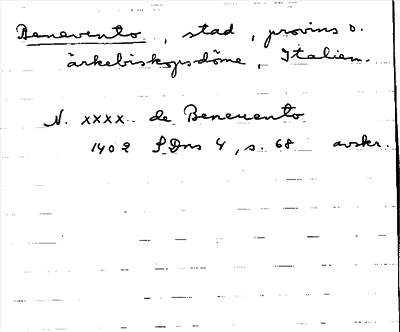 Benevento, stad, provins o.
ärkebiskopsdöme, Italien.
N. xxxx de Beneuento
1402 SDns 4, s. 68 avskr.